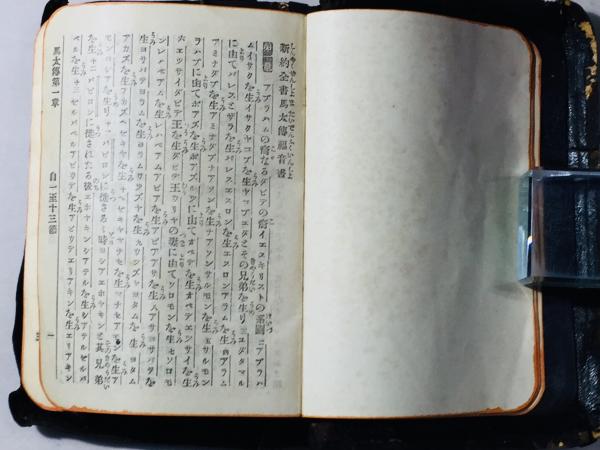 新約全書馬太傳福音書
第一章 アブラハムの裔なるダビデの裔イエスキリストの系圖 二 アブラハ
ムイサクを生イサクヤコブを生ヤコブユダとその兄弟を生り 三 ユダタマル
に由てパレスとザラを生パレスエスロンを生エスロンアラムを生 四 アラム
アミナダブを生アミナダブナアソンを生ナアソンサルモンを生 五 サルモン
ラハブに由てボアズを生ボアズルツに由てオベデを生オベデエッサイを生
六 エッサイダビデ王を生ダビデ王ウリヤの妻に由てソロモンを生 七 ソロモ
ンレハベアムを生レハベアムアビアを生アビアアサを生 八 アサヨサパテを
生ヨサパテヨラムを生ヨラムウツズヤを生 九 ウツズヤヨタムを生ヨタム
アカズを生アカズヘゼキヤを生 十 ヘゼキヤマナセを生マナセアモンを生ア
モンヨシアを生り 十一 バビロンに徙さるゝ時ヨシアエホヤキンと其兄弟
を生 十二 バビロンに徙されたる後エホヤキンシアテルを生シアテルゼルバ
ベルを生 十三 ゼルバベルアビウデを生アビウデエリアキンを生エリアキン
馬太傳第一章 自一至十三節 一